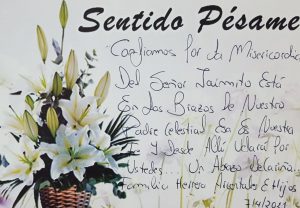 Sentido Pésame
Confiamos Por la Misericordia
Del Señor Jaimito Está
En Los Brazos De Nuestro
Padre Celestial Esa Es Nuestra
Fe Y Desde Allí Velará Por
Ustedes... Un Abrazo
Familia Herrera e Hijos
7/4/2021